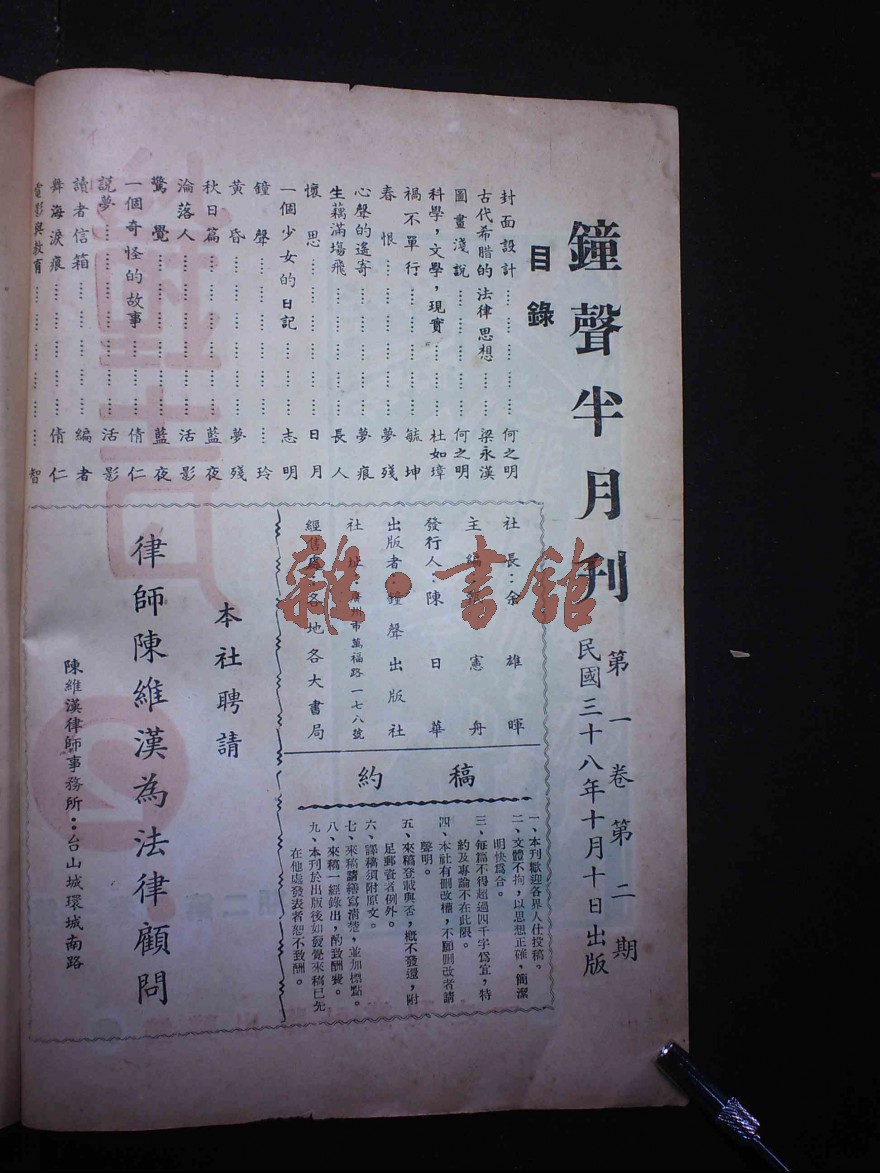 鐘聲半月刊
第一卷第二期
民國三十八年十月十日出版
目錄
封面設計…………何之明
古代希腊的法律思想……梁永漢
圖畫淺說…………何之明
科學，文學，現實………杜如璋
禍不單行…………毓坤
春恨…………夢殘
心聲的遙寄…………夢痕
生藕滿塲飛…………長人
懷思…………日月
一個少女的日記…………志明
鐘聲…………玲
黃昏…………夢殘
秋日篇…………藍夜
淪落人…………活影
驚覺…………藍夜
一個奇怪的故事…………倩仁
說夢…………活影
讀者信箱…………編者
舞海淚痕…………倩仁
電影與教育…………智
社長：余雄暉
主編：憲舟
發行人：陳日華
出版者：鐘聲出版社
社址：廣州市萬福路一七八號
經售處：各地各大書局
稿約
一、本刊歡迎各界人仕投稿。
二、文體不拘，以思想正確，簡潔
明快爲合。
三、每篇不得超過四千字爲宜，特
約及專論不在此限。
四、本社有删改權，不願删改者請
聲明。
五、來稿登載與否，概不發還，附
足郵資者例外。
六、譯稿須附原文。
七、來稿請繕寫清楚，並加標點。
八、來稿一經錄出，酌致酬費。
九、本刊於出版後如發覺來稿已先
在他處發表者恕不致酬。
本社聘請
律師陳維漢為法律顧問
陳維漢律師事務所：台山城環城南路
雜·書館